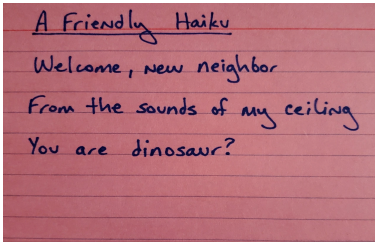 A Friendly Haiku
Welcome, new neighbor
From the sounds of my ceiling
You are dinosaur?